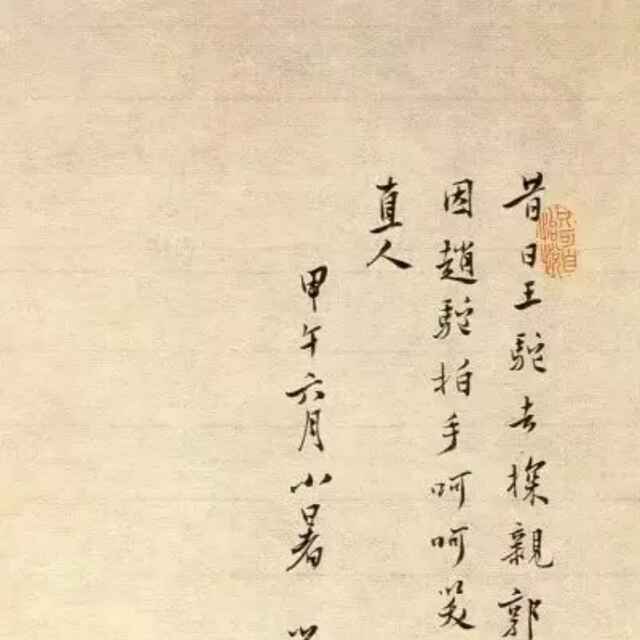 昔日王駝去探親郭
因趙駝拍手呵呵笑
直人
甲午六月小暑